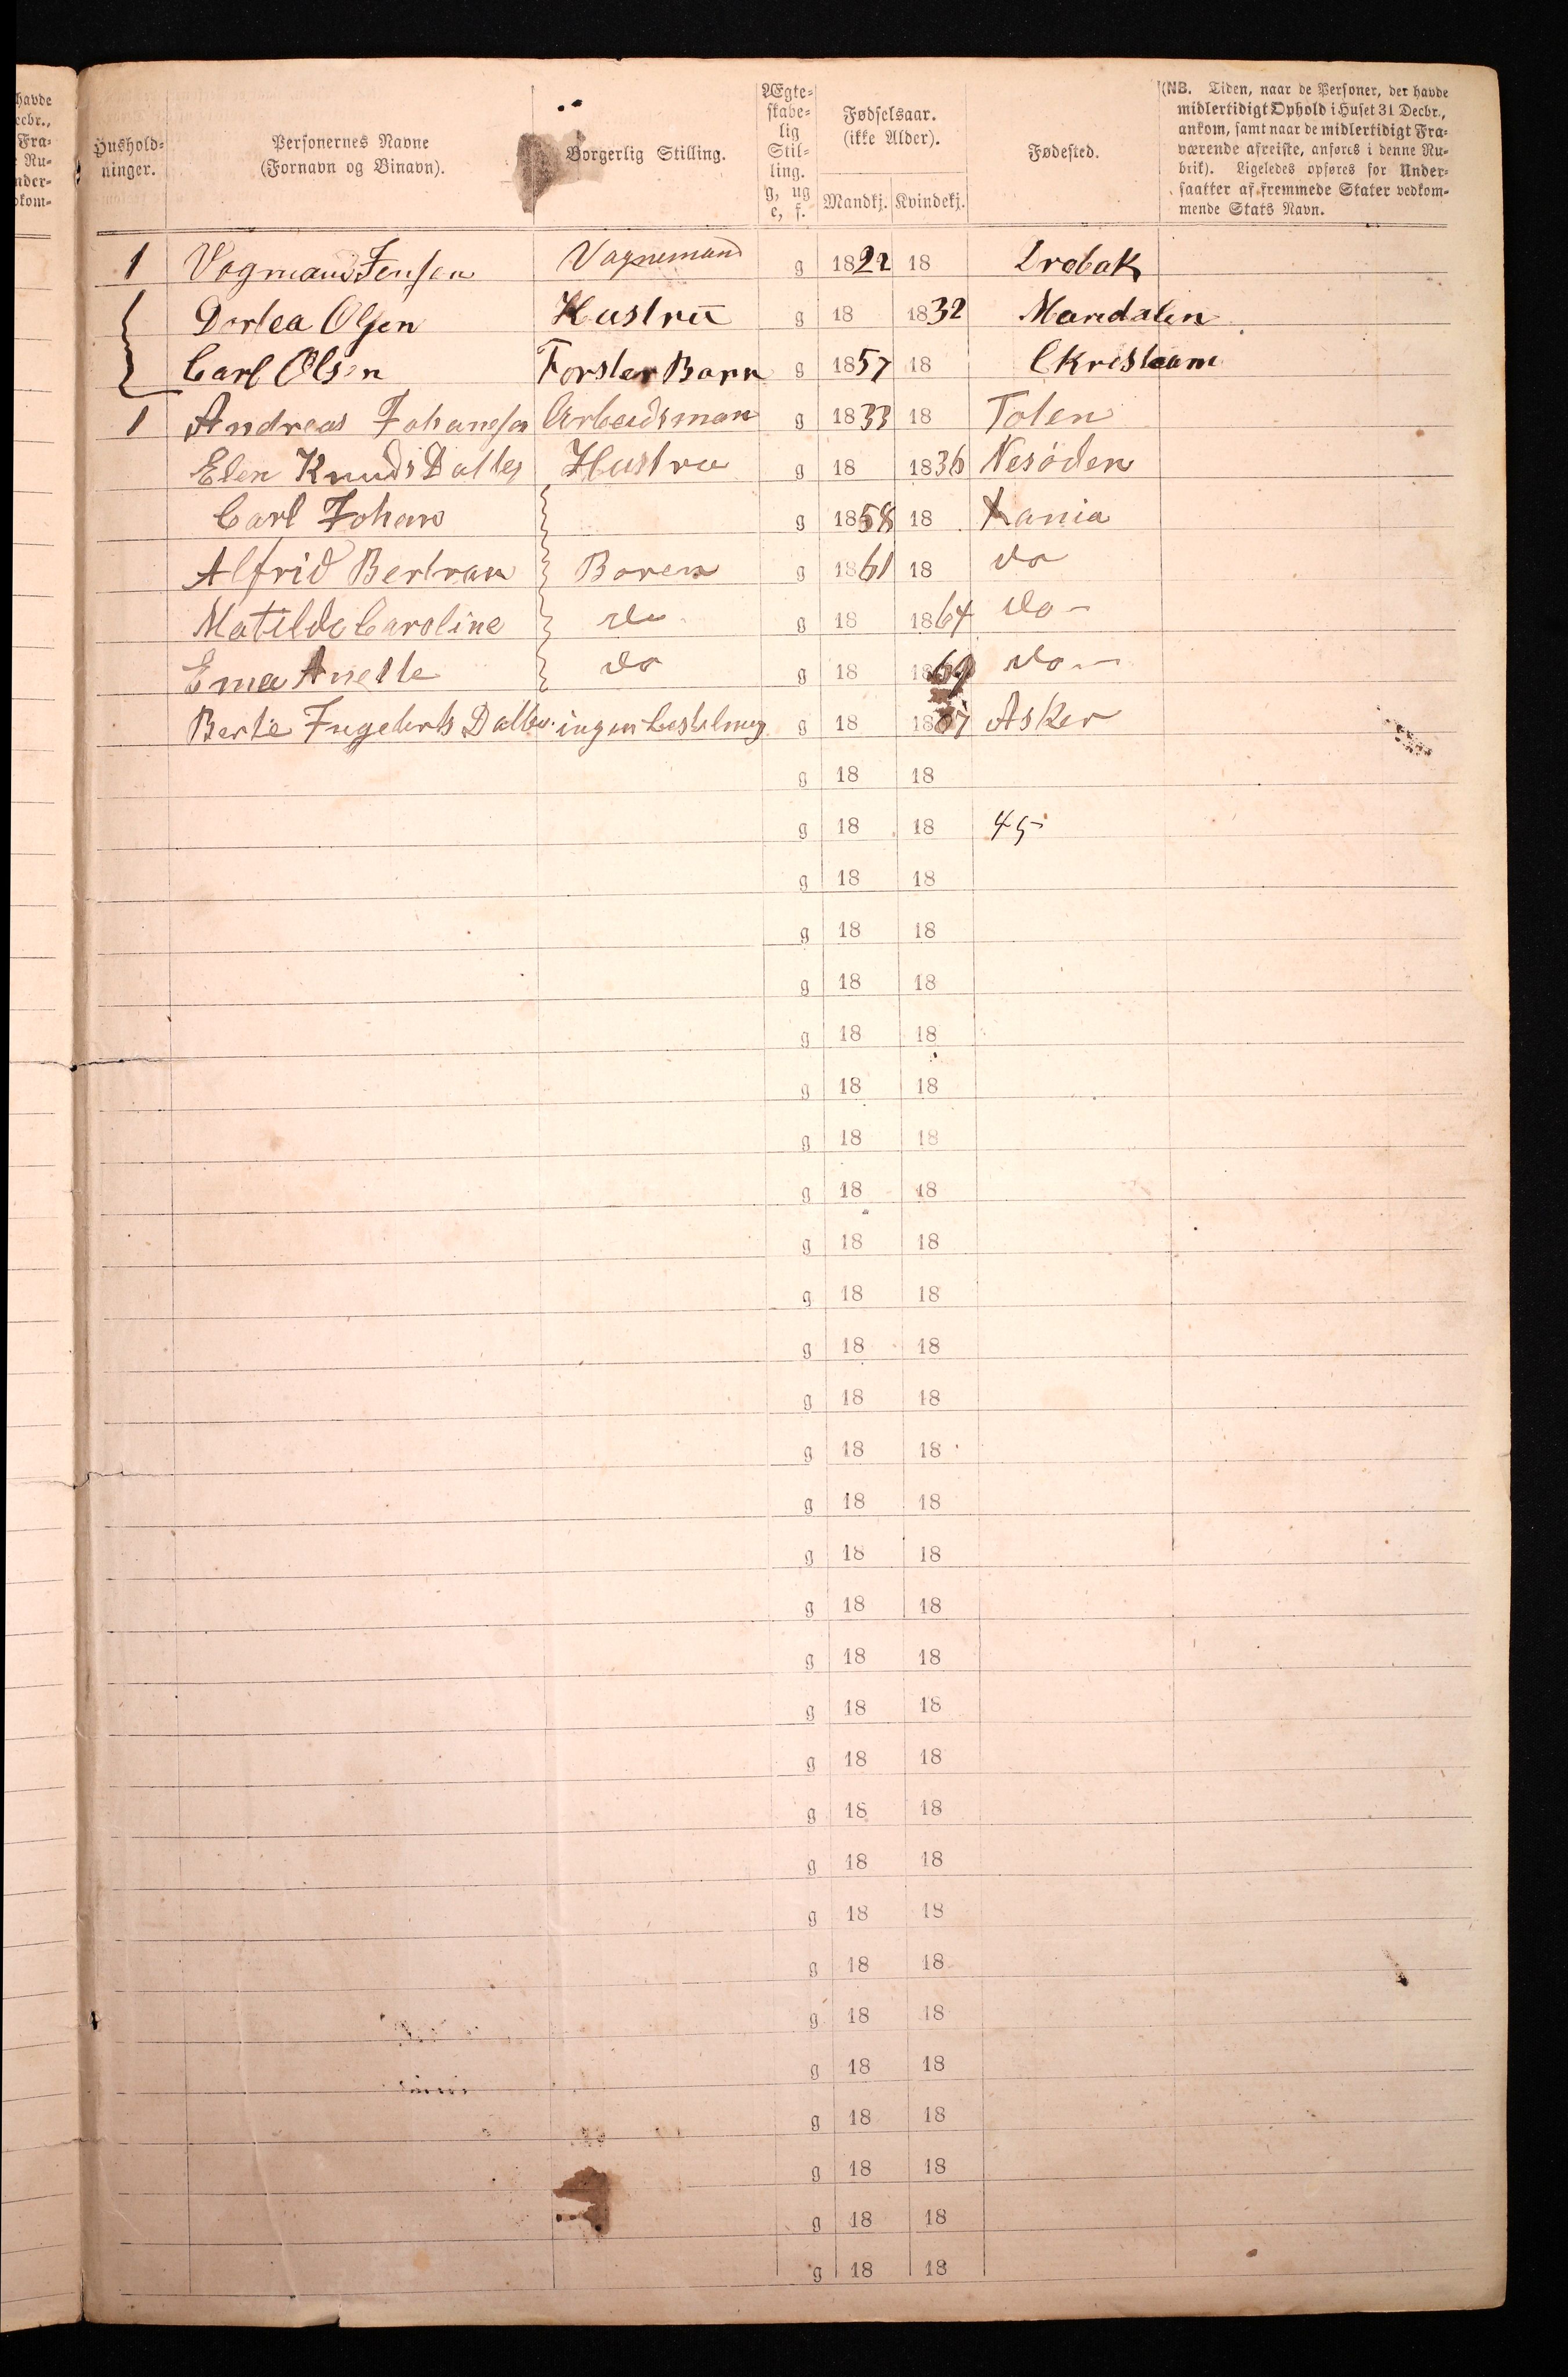 havde
ecbr.,
Fra-
Nu-
nder-
dkom-
Hushold-
ninger.
Personernes Navne
(Fornavn og Binavn).
Borgerlig Stilling.
Ægte-
skabe-
lig
Stil-
ling.
g, ug
e, f.
Fødselsaar.
(ikke Alder).
Mandkj. Kvindekj.
Fødested.
(NB. Tiden, naar de Personer, der havde
midlertidigt Ophold i Huset 31 Decbr.,
ankom, samt naar de midlertidigt Fra-
værende afreiste, anføres i denne Ru-
brik). Ligeledes opføres for Under-
saatter af fremmede Stater vedkom-
mende Stats Navn.
1 Vogmand Jensen Vognemand g 1822 18 Drobak
Dortea Olsen Hustru g 18 1832 Mandalen
Carl Olsen Forster Barn g 1857 18 Ckristeam
1 Andreas Johansen Arbeidsman g 1833 18 Toten
Elen Knuds Datter Hustru g 18 1836 Nesöden
Carl Johan g 1858 18 Kania
Alfrid Bertran Boren g 1861 18 do
Matilde Caroline do g 18 1864 do
Ema Anette do g 18 1869 do
Berte Ingebrts Datter ingen bestelning g 18 18 Asker
g 18 18
g 18 18 45
g 18 18
g 18 18
g 18 18
g 18 18
g 18 18
g 18 18
g 18 18
g 18 18
g 18 18
g 18 18
g 18 18
g 18 18
g 18 18
g 18 18
g 18 18
g 18 18
g 18 18
g 18 18
g 18 18
g 18 18
g 18 18
g 18 18
g 18 18
g 18 18
g 18 18
g 18 18
g 18 18
g 18 18